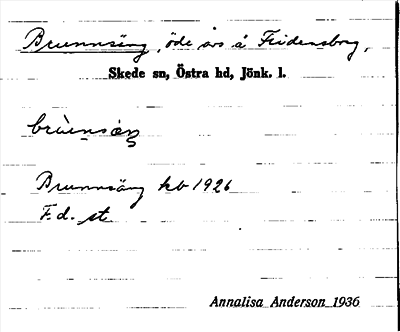 Brunnsäng, öde avs å Fridensborg,
Skede sn, Östra hd, Jönk. l.
Brunnsäng kb 1926
F.d. st
Annalisa Anderson 1936